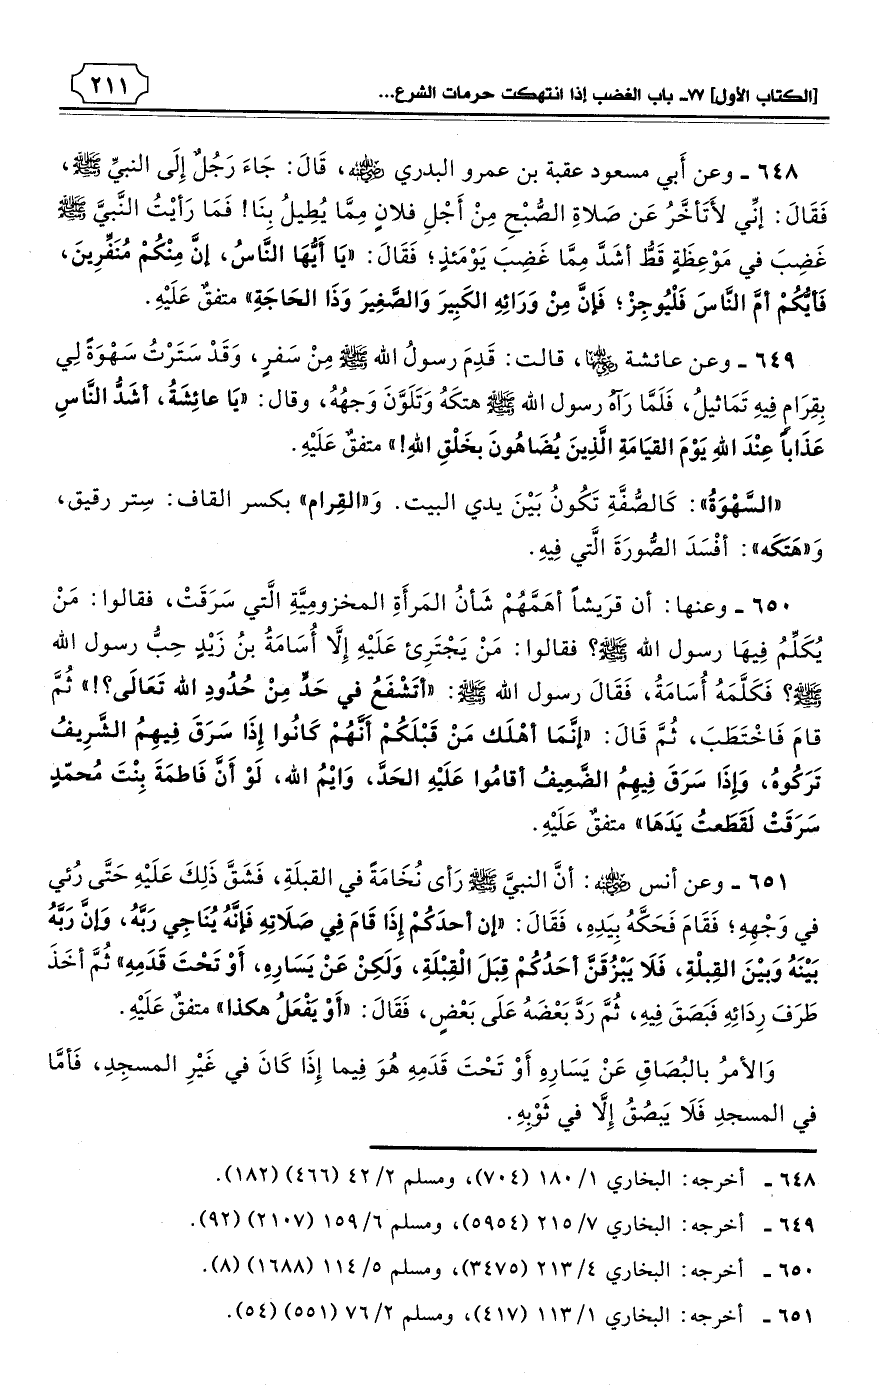 [الكتاب الأول] ٧٧ـ باب الغضب إذا انتهكت حرمات الشرع...
٢١١
٦٤٨ ـ وعن أَبي مسعود عقبة بن عمرو البدري رضي الله عنه، قَالَ: جَاءَ رَجُلٌ إِلَى النبيِّ ﷺ،
فَقَالَ: إنِّي لأَتَأخَّرُ عَن صَلاةِ الصُّبْحِ مِنْ أَجْلِ فلانٍ مِمَّا يُطِيلُ بِنَا! فَمَا رَأيْتُ النَّبيَّ ﷺ
غَضِبَ في مَوْعِظَةٍ قَطُّ أشَدَّ مِمَّا غَضِبَ يَوْمَئذٍ؛ فَقَالَ: «يَا أَيُّهَا النَّاسُ، إنَّ مِنْكُمْ مُنَفِّرِينَ،
فَأيُّكُمْ أمَّ النَّاسَ فَلْيُوجِزْ؛ فَإنَّ مِنْ وَرَائِهِ الكَبِيرَ وَالصَّغِيرَ وَذَا الحَاجَةِ» متفقٌ عَلَيْهِ.
٦٤٩ ـ وعن عائشة رضي الله عنها، قالت: قَدِمَ رسولُ الله ﷺ مِنْ سَفرٍ، وَقَدْ سَتَرْتُ سَهْوَةً لِي
بِقِرَامٍ فِيهِ تَمَاثيلُ، فَلَمَّا رَآهُ رسول الله ﷺ هتكَهُ وَتَلَوَّنَ وَجهُهُ، وقال: «يَا عائِشَةُ، أشَدُّ النَّاسِ
عَذَاباً عِنْدَ اللهِ يَوْمَ القيَامَةِ الَّذِينَ يُضَاهُونَ بخَلْقِ اللهِ!» متفقٌ عَلَيْهِ.
«السَّهْوَةُ»: كَالصُّفَّةِ تَكُونُ بَيْنَ يدي البيت. وَ«القِرام» بكسر القاف: سِتر رقيق،
وَ«هَتكَه»: أفْسَدَ الصُّورَةَ الَّتي فِيهِ.
٦٥٠ ـ وعنها: أن قرَيشاً أهَمَّهُمْ شَأنُ المَرأَةِ المخزوميَّةِ الَّتي سَرَقَتْ، فقالوا: مَنْ
يُكَلِّمُ فِيهَا رسول الله ﷺ؟ فقالوا: مَنْ يَجْتَرِئ عَلَيْهِ إلَّا أُسَامَةُ بنُ زَيْدٍ حِبُّ رسول الله
ﷺ؟ فَكَلَّمَهُ أُسَامَةُ، فَقَالَ رسول الله ﷺ: «أتَشْفَعُ في حَدٍّ مِنْ حُدُودِ الله تَعَالَى؟!» ثُمَّ
قامَ فَاخْتَطَبَ، ثُمَّ قَالَ: «إنَّمَا أهْلَك مَنْ قَبْلَكُمْ أَنَّهُمْ كَانُوا إِذَا سَرَقَ فِيهِمُ الشَّرِيفُ
تَرَكُوهُ، وَإِذَا سَرَقَ فِيهِمُ الضَّعِيفُ أقامُوا عَلَيْهِ الحَدَّ، وَايْمُ الله، لَوْ أَنَّ فَاطمَةَ بِنْتَ مُحمّدٍ
سَرَقَتْ لَقَطَعتُ يَدَهَا» متفقٌ عَلَيْهِ.
٦٥١ ـ وعن أنس رضي الله عنه: أنَّ النبيَّ ﷺ رَأى نُخَامَةً في القبلَةِ، فَشَقَّ ذَلِكَ عَلَيْهِ حَتَّى رُئي
في وَجْهِهِ؛ فَقَامَ فَحَكَّهُ بِيَدِهِ، فَقَالَ: «إن أحدَكُمْ إِذَا قَامَ فِي صَلَاتِهِ فَإنَّهُ يُنَاجِي رَبَّهُ، وَإنَّ رَبَّهُ
بَيْنَهُ وَبَيْنَ القِبلَةِ، فَلَا يَبْزُقَنَّ أَحَدُكُمْ قِبَلَ الْقِبْلَةِ، وَلَكِنْ عَنْ يَسَارِهِ، أَوْ تَحْتَ قَدَمِهِ» ثُمَّ أخَذَ
طَرَفَ رِدَائِهِ فَبَصَقَ فِيهِ، ثُمَّ رَدَّ بَعْضَهُ عَلَى بَعْضٍ، فَقَالَ: «أَوْ يَفْعَلُ هكذا» متفقٌ عَلَيْهِ.
وَالأمرُ بالبُصَاقِ عَنْ يَسَارِهِ أَوْ تَحْتَ قَدَمِهِ هُوَ فِيما إِذَا كَانَ في غَيْرِ المسجِدِ، فَأمَّا
في المسجدِ فَلَا يَبصُقُ إلَّا في ثَوْبِهِ.
٦٤٨ ـ أخرجه: البخاري ١/ ١٨٠ (٧٠٤)، ومسلم ٢/ ٤٢ (٤٦٦) (١٨٢).
٦٤٩ ـ أخرجه: البخاري ٧/ ٢١٥ (٥٩٥٤)، ومسلم ٦/ ١٥٩ (٢١٠٧) (٩٢).
٦٥٠ ـ أخرجه: البخاري ٤/ ٢١٣ (٣٤٧٥)، ومسلم ٥/ ١١٤ (١٦٨٨) (٨).
٦٥١ ـ أخرجه: البخاري ١/ ١١٣ (٤١٧)، ومسلم ٢/ ٧٦ (٥٥١) (٥٤).